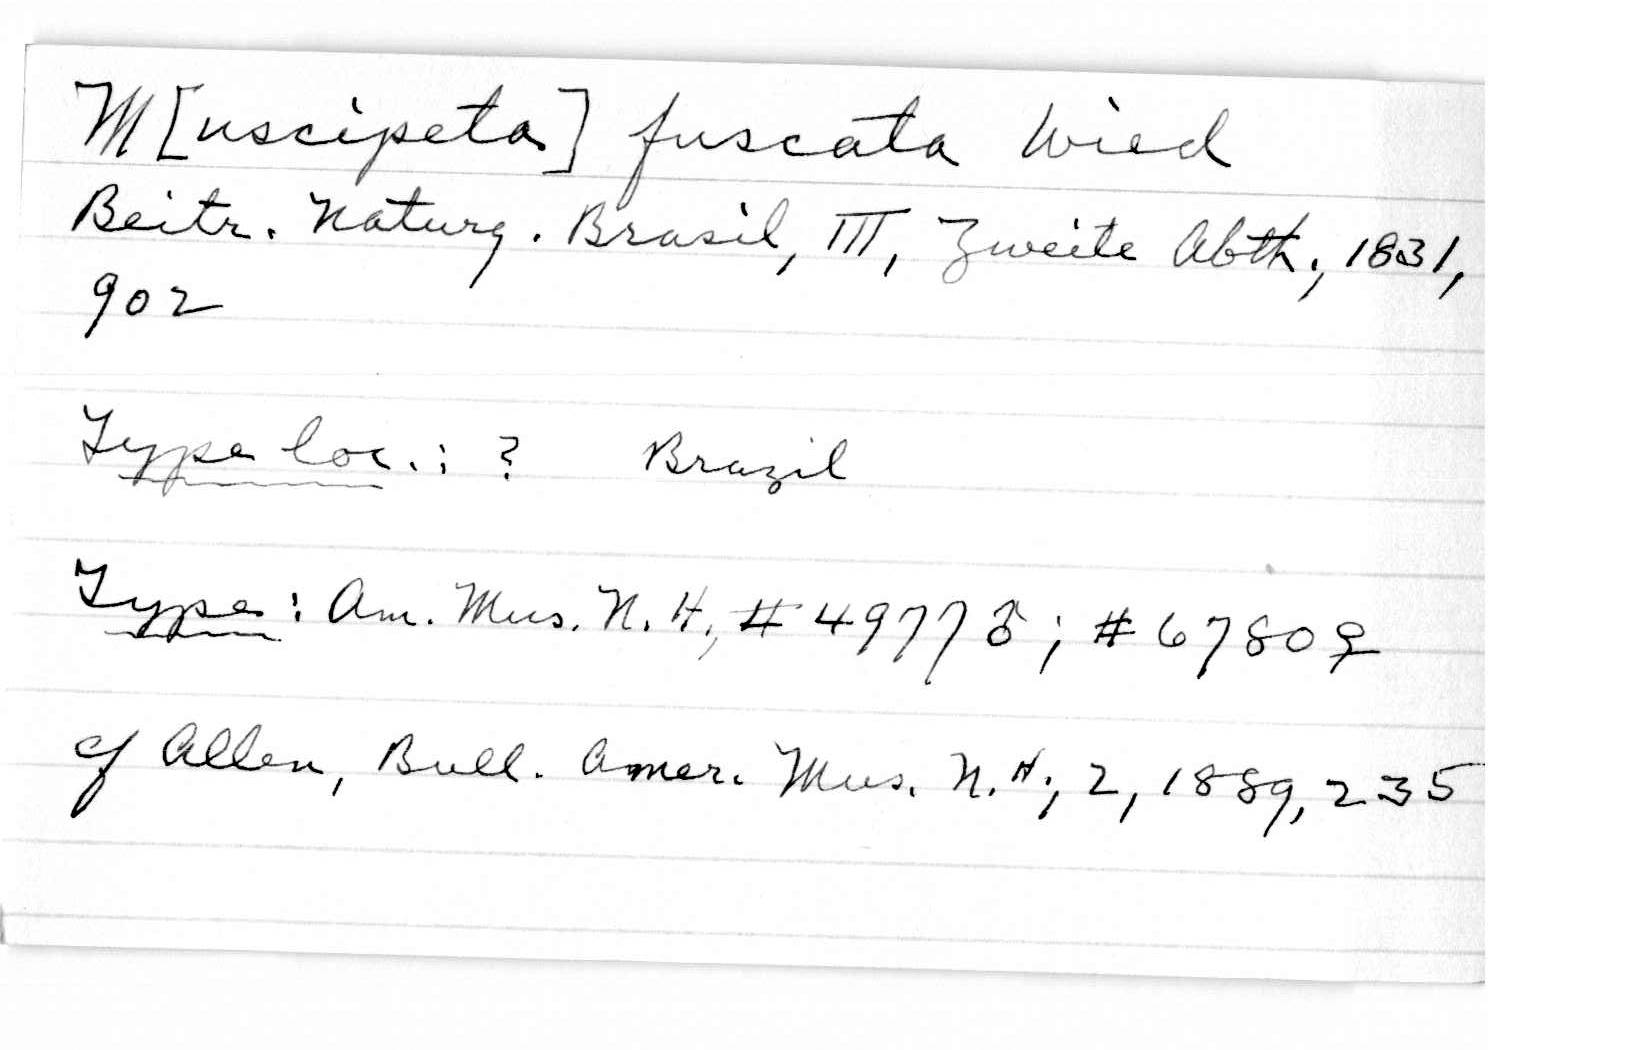 M[uscipeta] fuscata Wied
Beitr. Naturg. Brasil, III, Zweite Abth., 1831,
902
Type loc.: ? Brazil
Type: Am. Mus. N. H., #4977♂; #6780♀
cf Allen, Bull. Amer. Mus. N. H., 2, 1889, 235